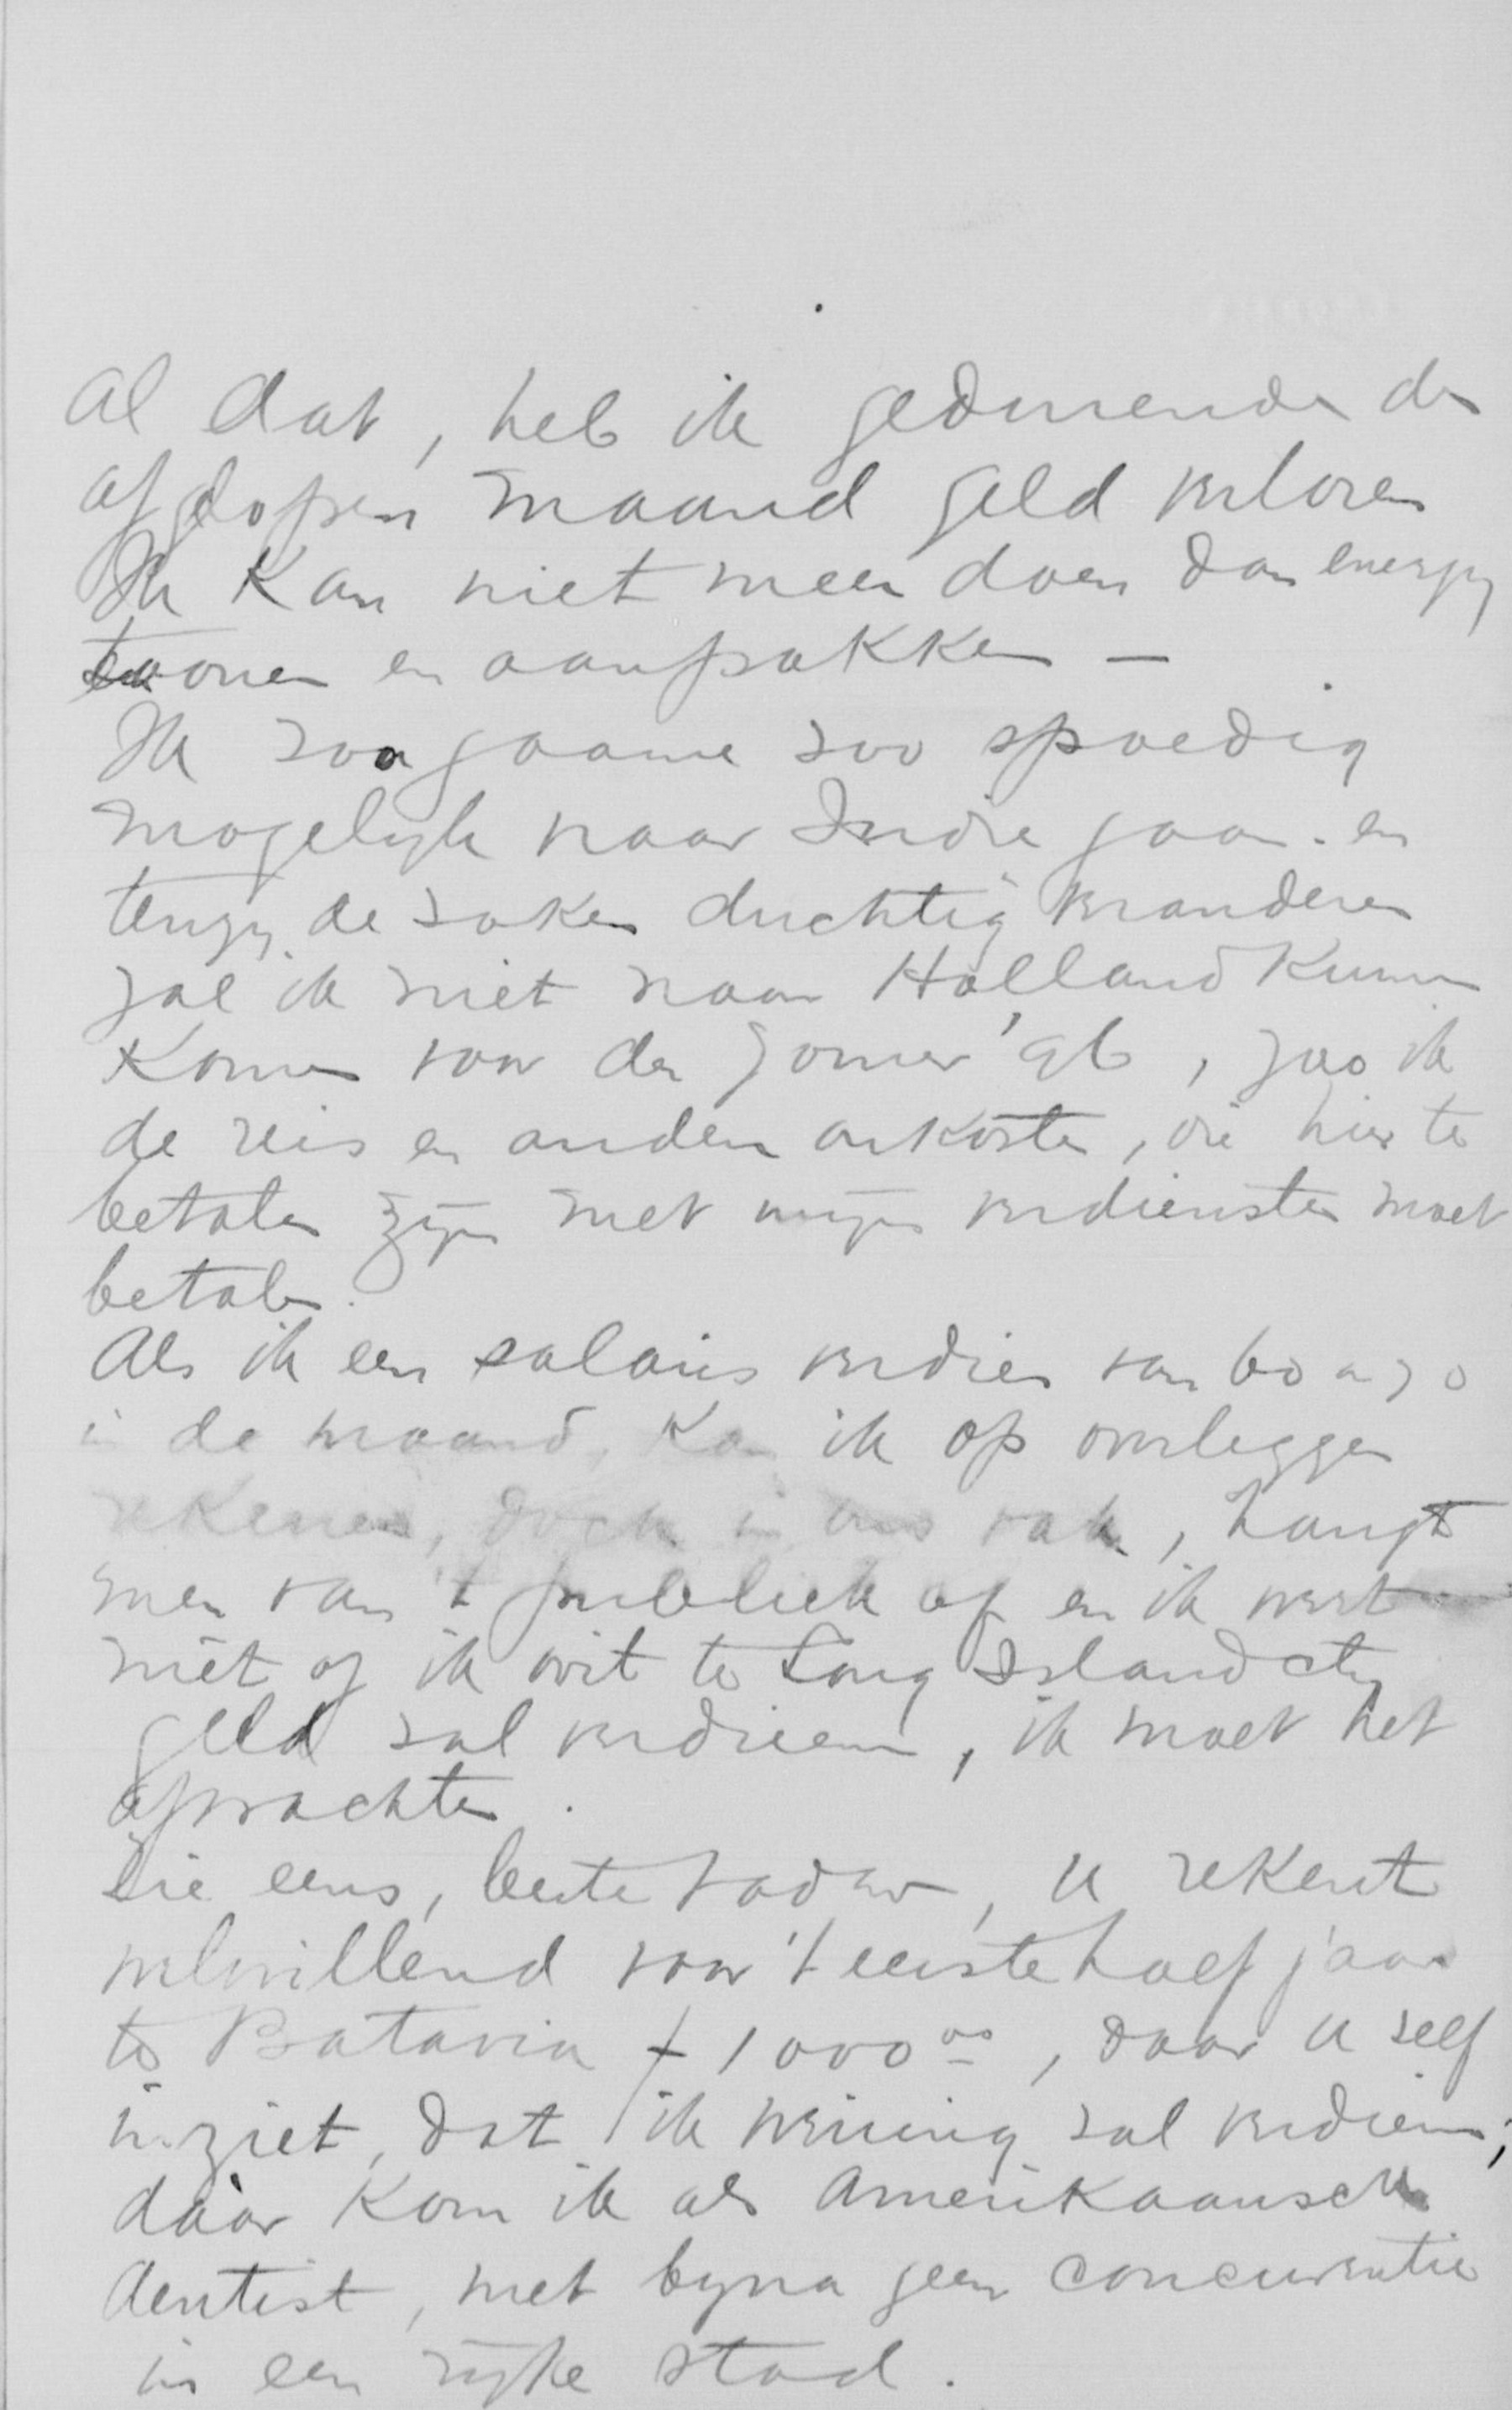 al dat, heb ik gedurende de
afgelopen maand geld verloren
Ik kan niet meer doen dan energy
toonen en aanpakken —
Ik zou gaarne zoo spoedig
mogelijk naar Indie gaan. en
tenzy de zaken duchtig veranderen
zal ik niet naar Holland kunnen
komen voor den zomer '96, zoo ik
de reis en andere onkosten, die hier te
betalen zijn met mijn verdiensten moet
betalen.
Als ik een salaris verdien van 60 a 70
in de maand, kan ik op overleggen
rekenen, doch in ons vak, hangt
men van 't publiek af en ik weet
niet of ik ooit te Long Island City
geld zal verdienen, ik moet het
afwachten.
Zie eens, beste vader, u rekent
welwillend voor 't eerste half jaar
te Batavia f 1000.00, daar u zelf
inziet, dat ik weinig zal verdienen;
daar kom ik als Amerikaansch
dentist, met byna geen concurentie
in een rijke stad.